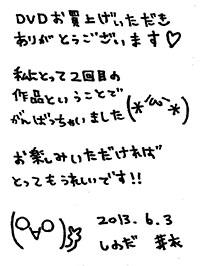 DVDお買上げいただき
ありがとうございます♡
私にとって2回目の
作品ということで
がんばっちゃいました(*´ω`*)
お楽しみいただければ
とってもうれしいです!!
2013.6.3
しおだ 芽衣